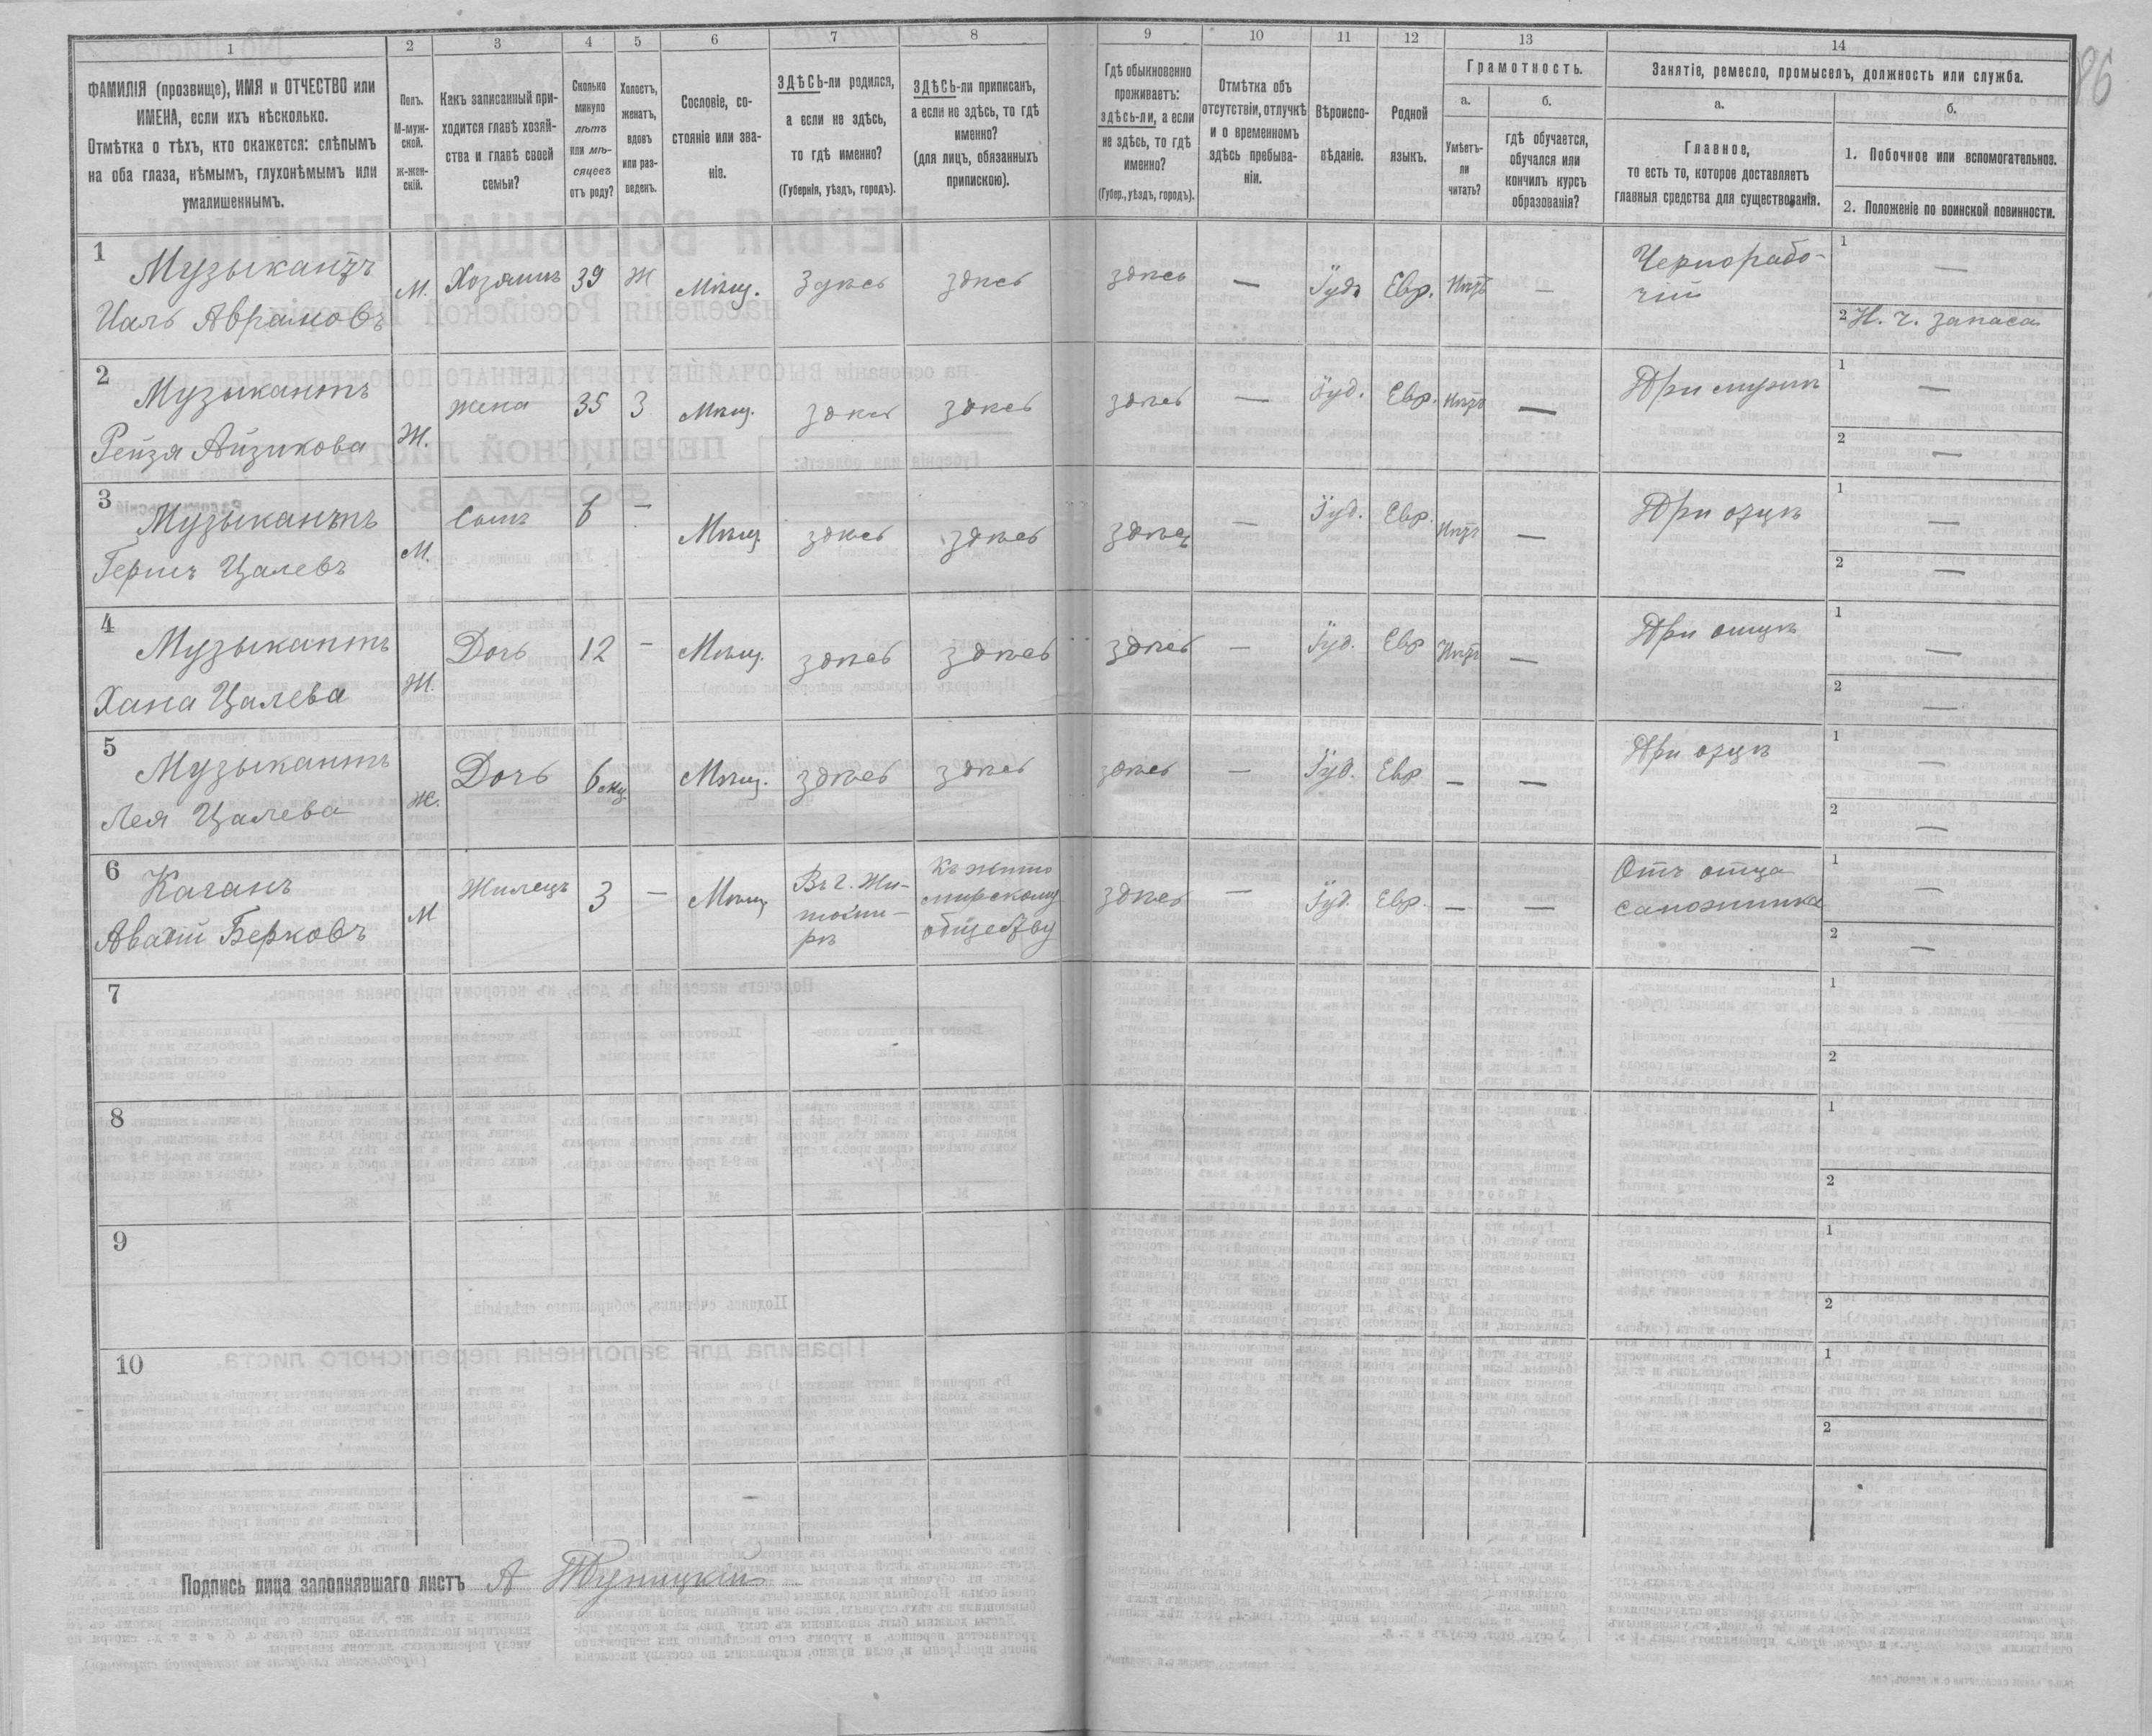 86
1 2 3 4 5 6 7 8 9 10 11 12 13 14
ФАМИЛІЯ (прозвище), ИМЯ и ОТЧЕСТВО или
ИМЕНА, если ихъ нѣсколько.
Отмѣтка о тѣхъ, кто окажется: слѣпымъ
на оба глаза, нѣмымъ, глухонѣмымъ или
умалишеннымъ.
Полъ.
М-муж-
ской.
ж-жен-
скій.
Какъ записанный при-
ходится главѣ хозяй-
ства и главѣ своей
семьи?
Сколько
минуло
лѣтъ
или мѣ-
сяцевъ
отъ роду?
Холостъ,
женатъ,
вдовъ
или раз-
веденъ.
Сословіе, со-
стояніе или зва-
ніе.
ЗДѢСЬ-ли родился,
а если не здѣсь,
то гдѣ именно?
(Губернія, уѣздъ, городъ).
ЗДѢСЬ-ли приписан,
а если не здѣсь, то гдѣ
именно?
(для лицъ, обязанныхъ
припискою).
Гдѣ обыкновенно
проживаетъ:
здѣсь-ли, а если
не здѣсь, то гдѣ
именно?
(Губер., уѣздъ, городъ).
Отмѣтка объ
отсутствіи, отлучкѣ
и о временномъ
здѣсь пребыва-
ніи.
Вѣроиспо-
вѣданіе.
Родной
языкъ.
Грамотность.
а.
Умѣетъ-
ли
читать?
б.
гдѣ обучается,
обучался или
кончилъ курсъ
образованія?
Занятіе, ремесло, промыселъ, должность или служба.
а.
Главное,
то есть то, которое доставляетъ
главныя средства для существованія.
б.
1. Побочное или вспомогательное.
2. Положеніе по воинской повинности.
1 Музыкантъ
Цаль Аврамовъ
М. Хозяинъ 39 Ж Мѣщ. Здѣсь здѣсь здѣсь — Іуд. Евр. Нѣтъ —
Чернорабо-
чій
1 —
2 Н. ч. запаса
2 Музыкантъ
Рейзя Айзикова
Ж. жена 35 З Мѣщ. здѣсь здѣсь здѣсь — Іуд. Евр. Нѣтъ — При мужѣ
1 —
2 —
3 Музыкантъ
Гершъ Цалевъ
М. Сынъ — Мѣщ. здѣсь здѣсь здѣсь — Іуд. Евр. Нѣтъ — При отцѣ
1 —
2 —
4 Музыкантъ
Хана Цалева
Ж. Дочь 12 — Мѣщ. здѣсь здѣсь здѣсь — Іуд. Евр Нѣтъ — При отцѣ
1 —
2 —
5 Музыкантъ
Лея Цалева
Ж. Дочь 6 мц. — Мѣщ. здѣсь здѣсь здѣсь — Іуд. Евр — — При отцѣ
1 —
2 —
6 Каганъ
Берковъ
М Жилецъ 3 — Мѣщ.
Въ г. Жи-
томи-
рѣ
Къ жито
мирскому
обществу
здѣсь — Іуд. Евр. — —
Отъ отца
сапожника
1 —
2 —
7 1
2
8 1
2
9 1
2
10 1
2
Подпись лица заполнявшаго листъ А